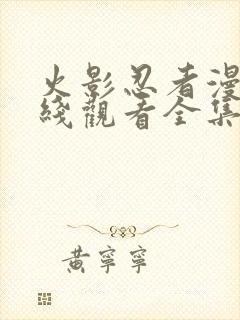 火影忍者漫
綫觀看全集
黃寧寧